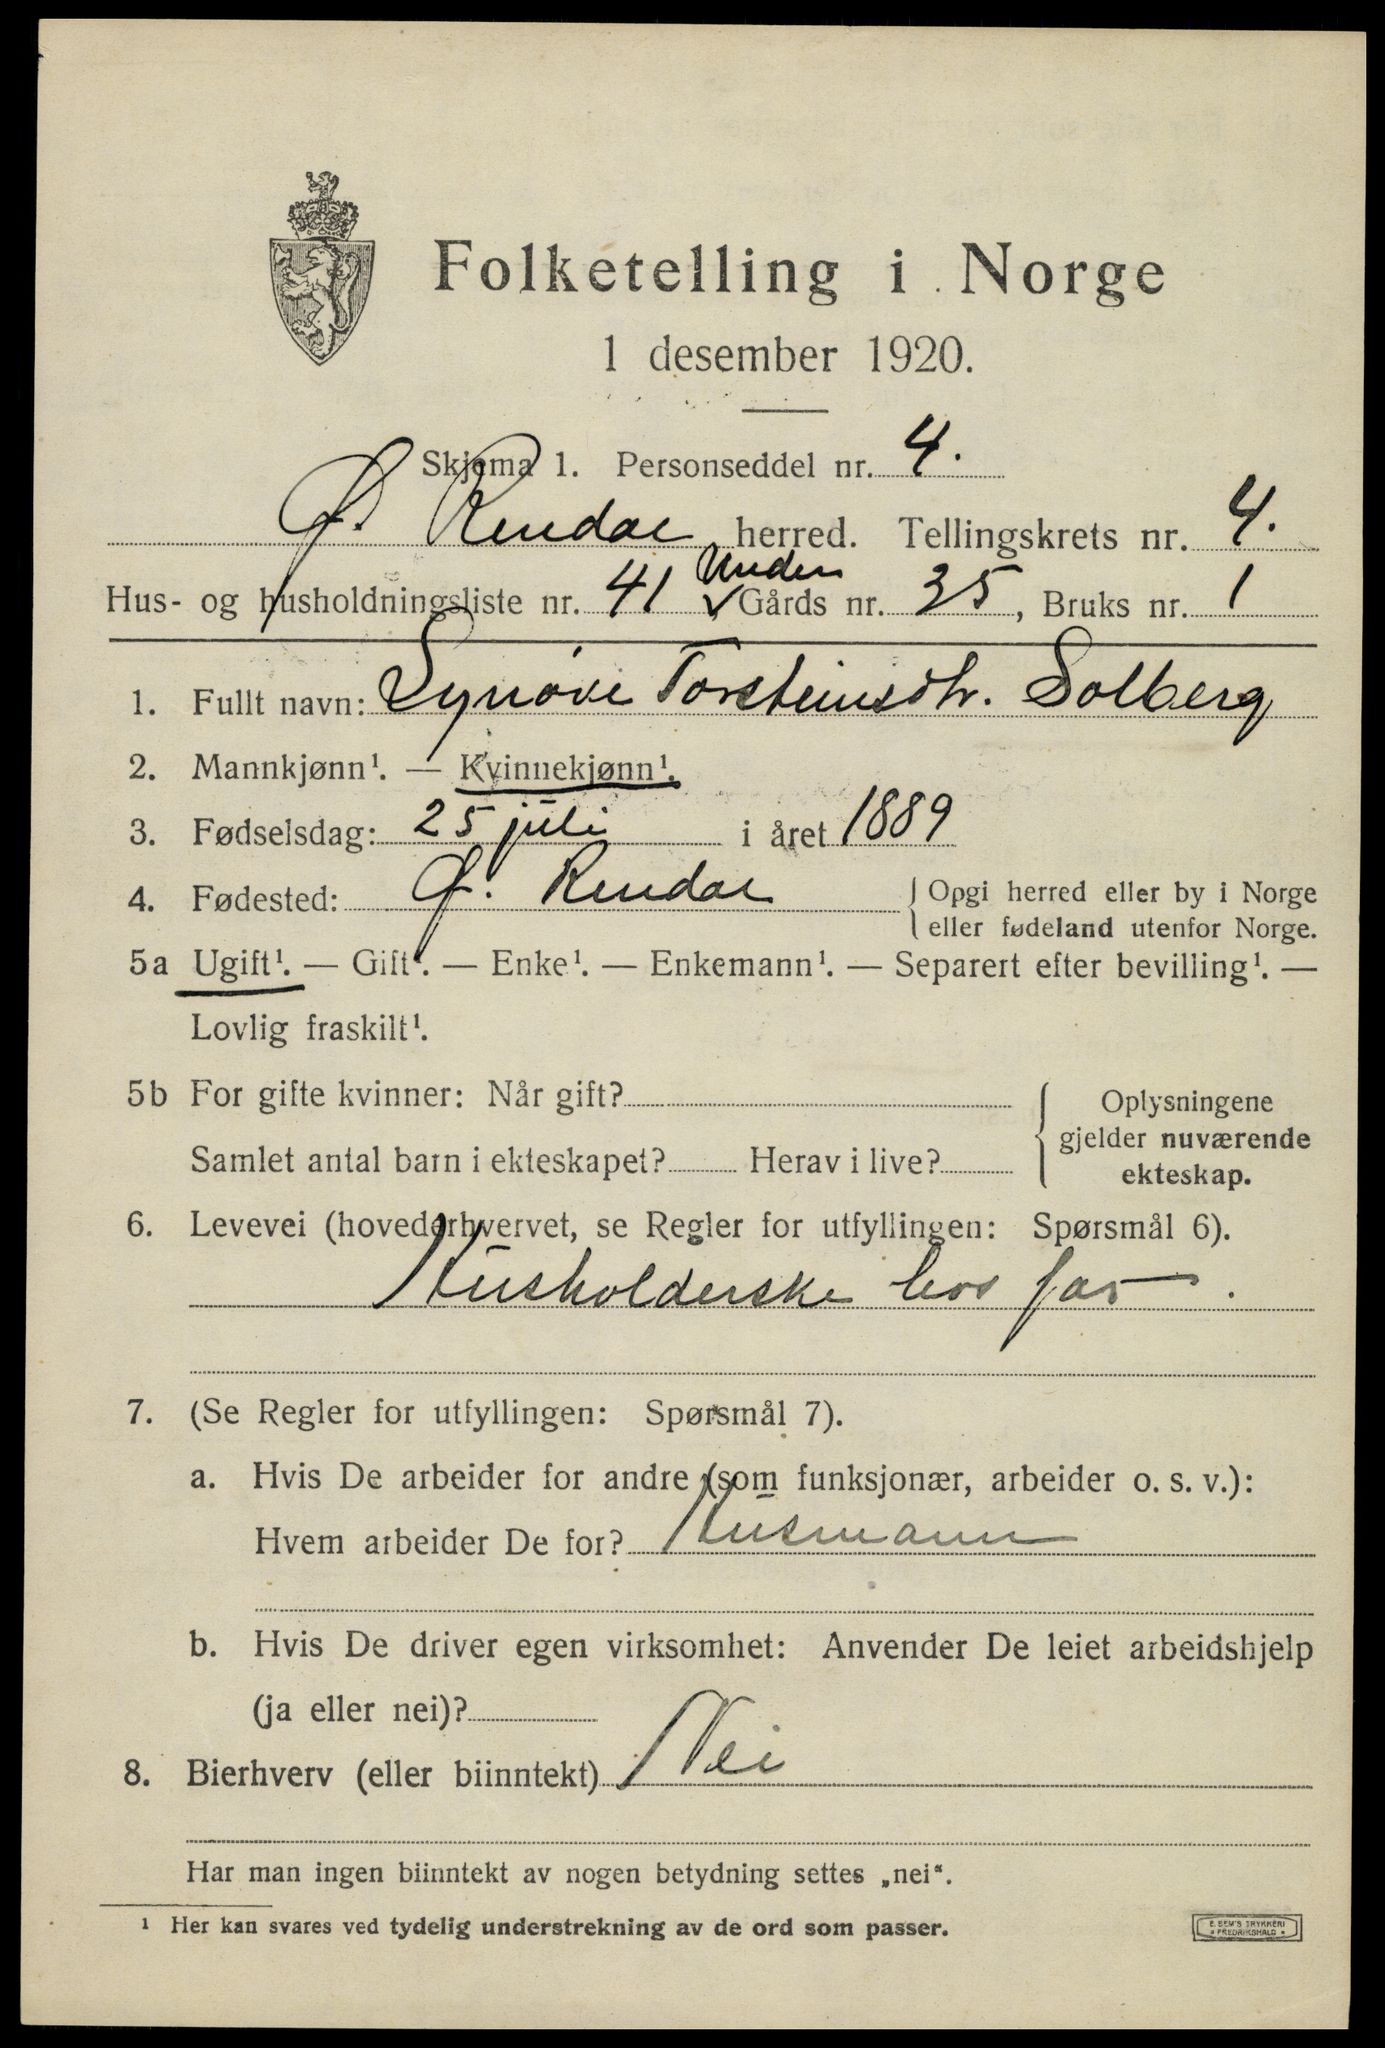 Folketelling i Norge
1 desember 1920.
Skjema 1. Personseddel nr. 4.
Ø. Rendal herred. Tellingskrets nr. 4.
Hus- og husholdningsliste nr. 41 Under Gårds nr. 35, Bruks nr. 1
1. Fullt navn: Synöve Torsteinsdtr. Solberg
2. Mannkjønn¹. — Kvinnekjønn¹.
3. Fødselsdag: 25 juli i året 1889
4. Fødested: Ø. Rendal { Opgi herred eller by i Norge
eller fødeland utenfor Norge.
5a Ugift¹. — Gift¹. — Enke¹. — Enkemann¹. — Separert efter bevilling¹. —
Lovlig fraskilt¹.
5b For gifte kvinner: Når gift?
Samlet antal barn i ekteskapet? Herav i live?
{ Oplysningene
gjelder nuværende
ekteskap.
6. Levevei (hovederhvervet, se Regler for utfyllingen: Spørsmål 6).
Husholderske hos far.
7. (Se Regler for utfyllingen: Spørsmål 7).
a. Hvis De arbeider for andre (som funksjonær, arbeider o. s. v.):
Hvem arbeider De for? Husmann
b. Hvis De driver egen virksomhet: Anvender De leiet arbeidshjelp
(ja eller nei)?
8. Bierhverv (eller biinntekt) Nei
Har man ingen biinntekt av nogen betydning settes „nei“.
¹ Her kan svares ved tydelig understrekning av de ord som passer.
E. SEM'S TRYKKERI
* FREDRIKSHALD *